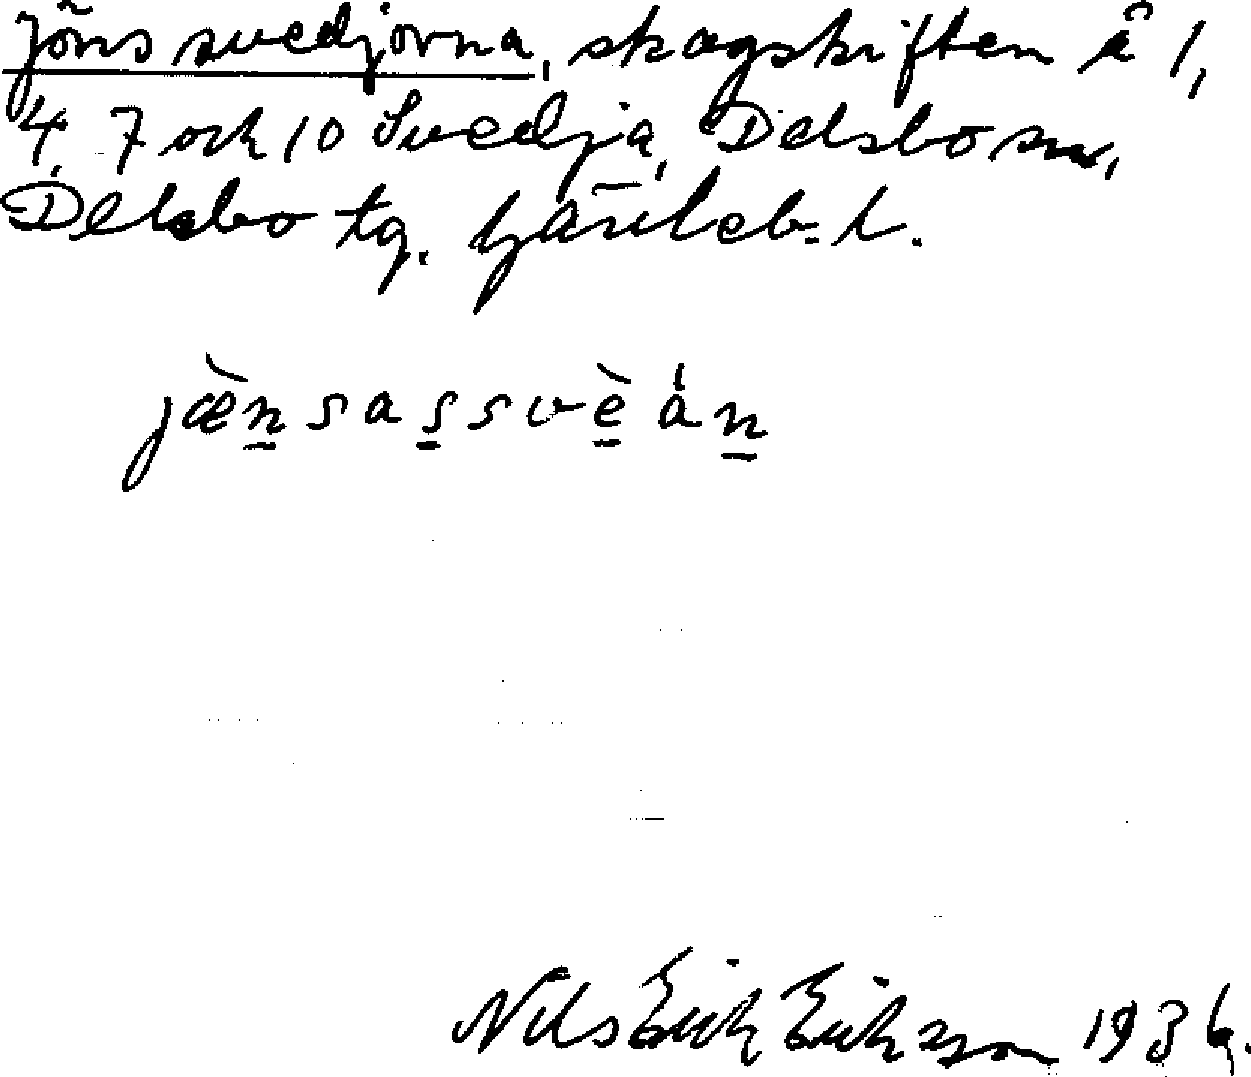 Jöns svedjorna, skogskiften å 1,
4, 7 och 10 Svedja, Delsbo sn,
Delsbo tg. Gävleb. l.
jæ̀n̲sas̲svè̲ån̲
Nils Erik Eriksson 1936.